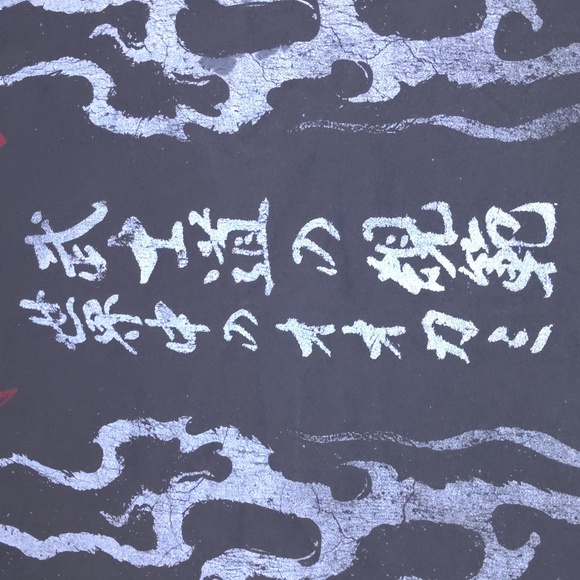 武士道の規範
世界中のオオカミ